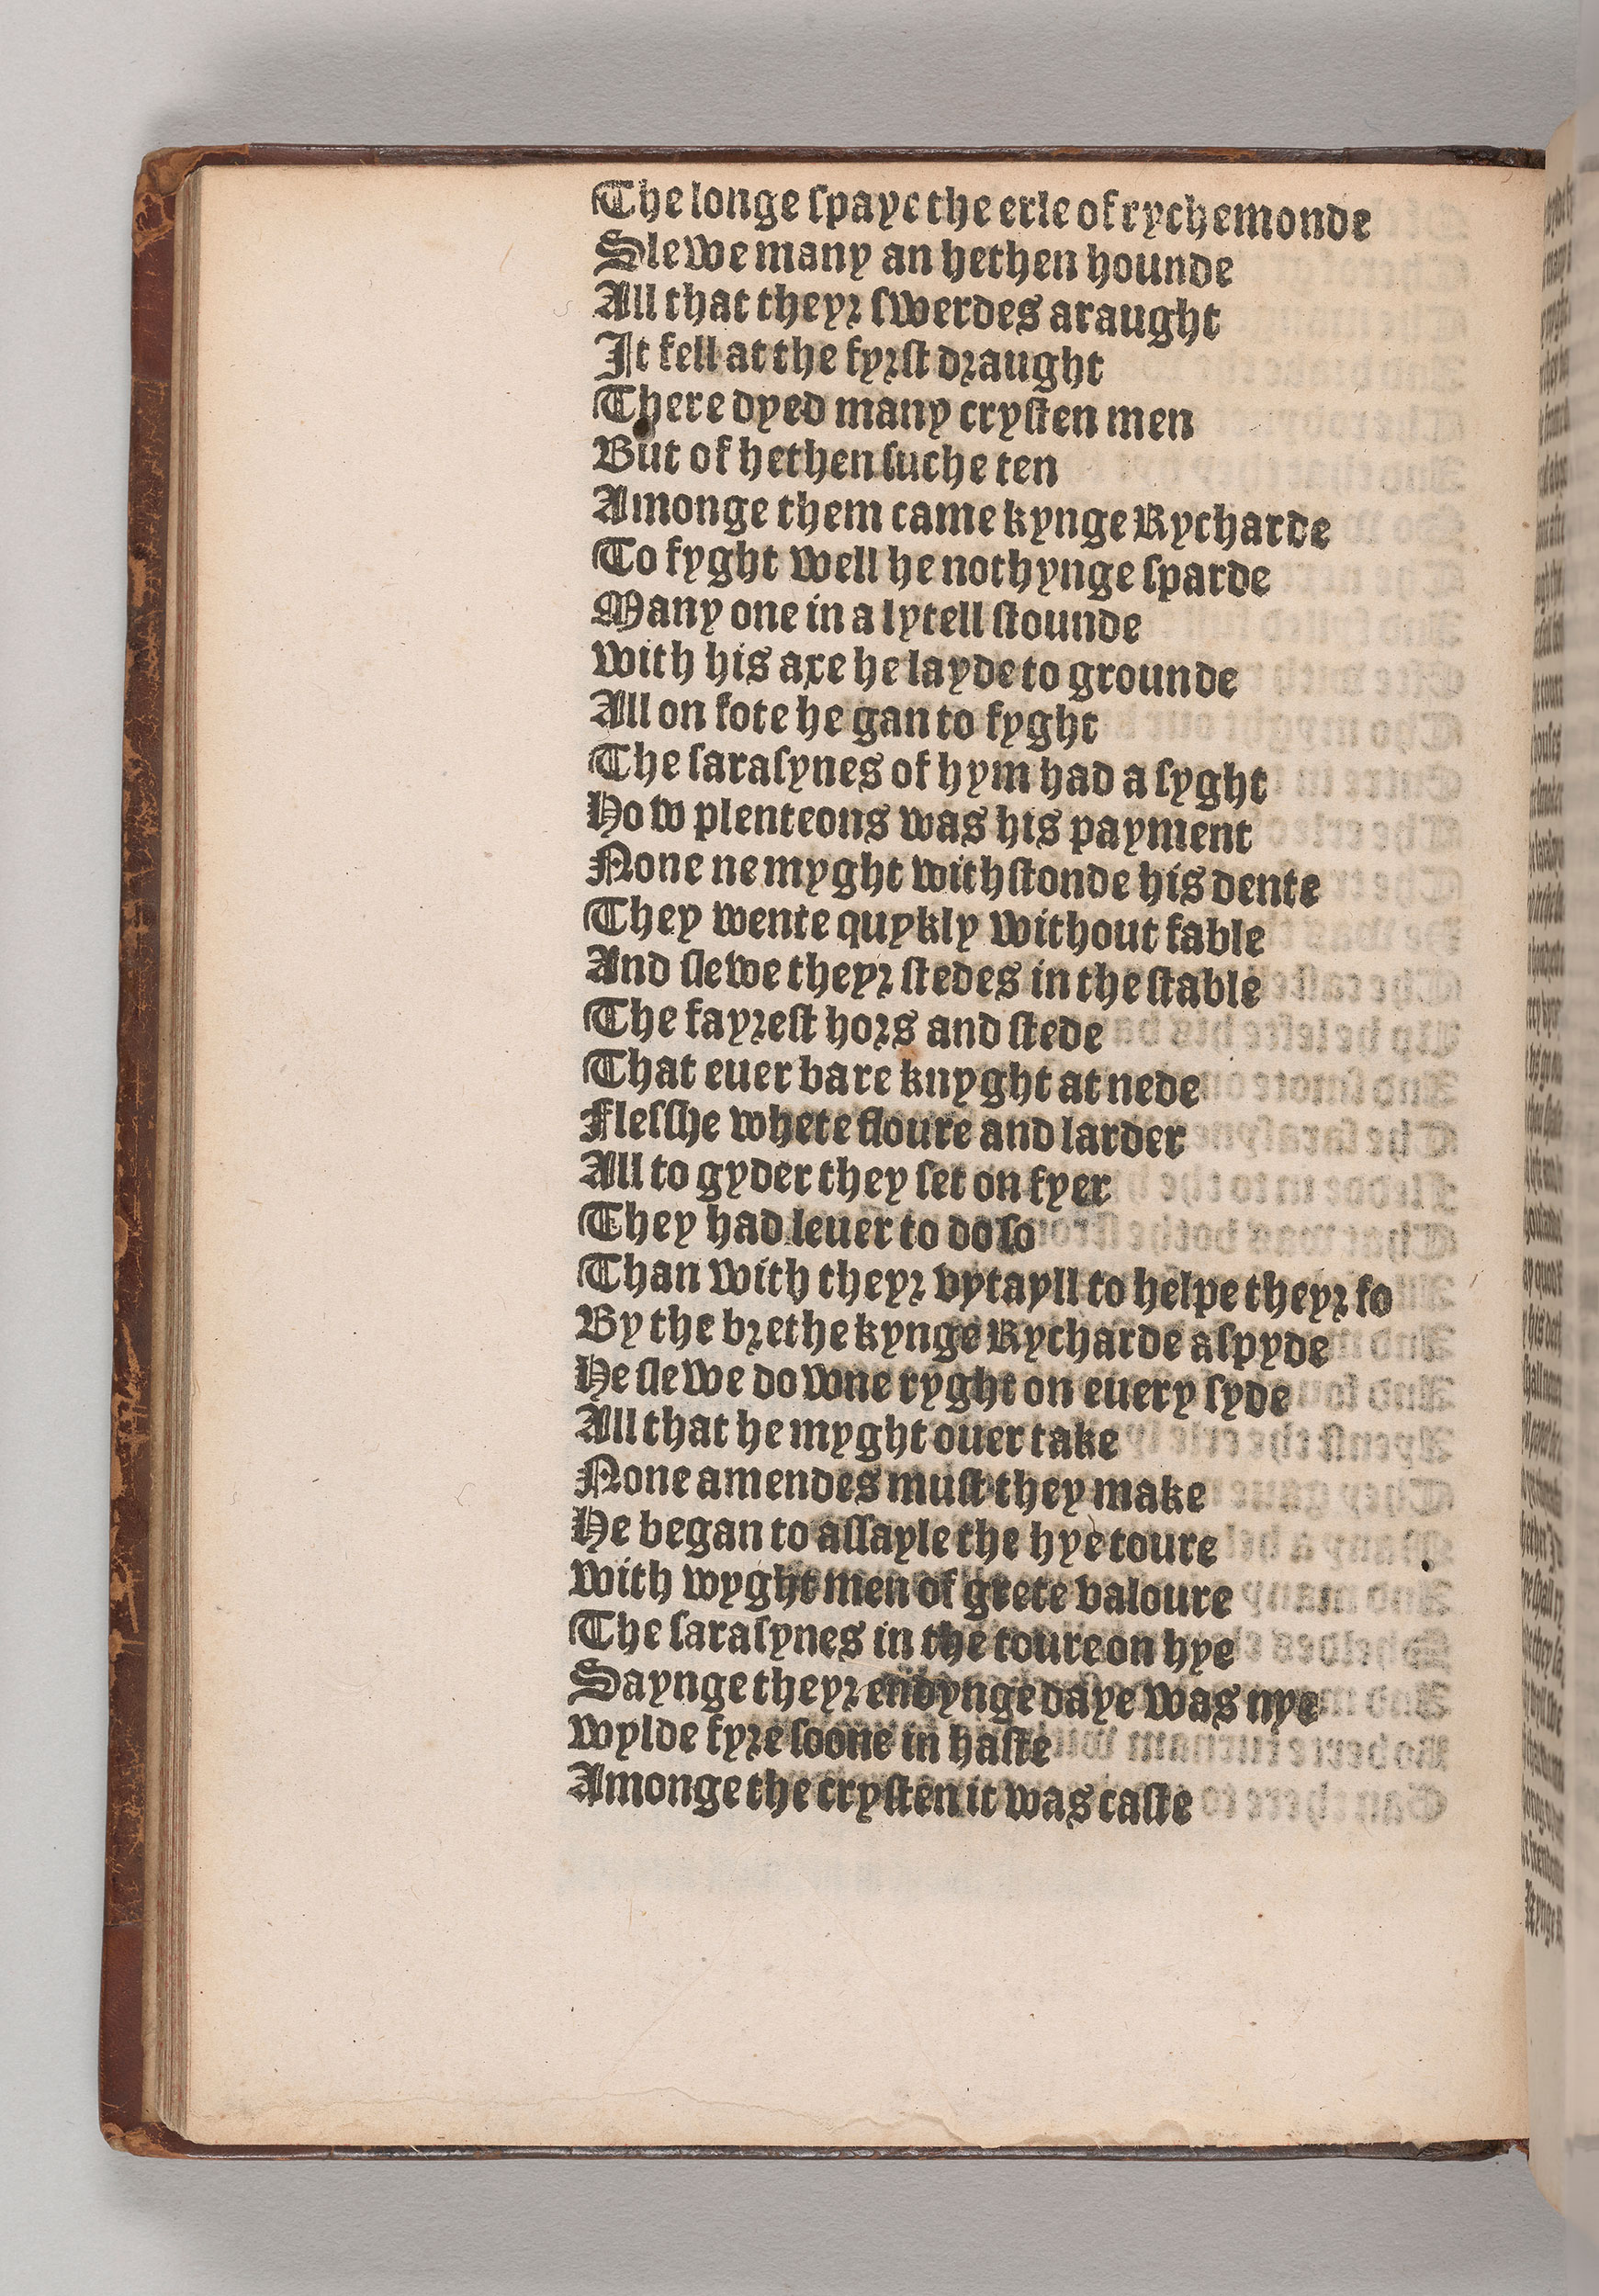 The longe ſpaye the erle of rychemonde
Slewe many an hethen hounde
All that theyꝛ ſwerdes araught
It fell at the fyꝛſt dꝛaught
There dyed many cryſten men
But of hethen ſuche ten
Amonge them came kynge Rycharde
To fyght well he nothynge ſparde
Many one in a lytell ſtounde
With his axe he layde to grounde
All on fote he gan to fyght
The ſaraſynes of hym had a ſyght
How plenteons was his payment
None ne myght withſtonde his dente
They wente quykly without fable
And ſlewe theyꝛ ſtedes in the ſtable
The fayꝛeſt hoꝛs and ſtede
That euer bare knyght at nede
Fleſſhe whete floure and larder
All to gyder they ſet on fyer
They had leuer to do ſo
Than with theyꝛ vytayll to helpe theyꝛ fo
By the bꝛethe kynge Rycharde aſpyde
He ſlewe downe ryght on euery ſyde
All that he myght ouer take
None amendes muſt they make
He began to aſſayle the hye toure
With wyght men of grete valoure
The ſaraſynes in the toure on hye
Saynge theyꝛ endynge daye was nye
Wylde fyꝛe ſoone in haſte
Amonge the cryſten it was caſte